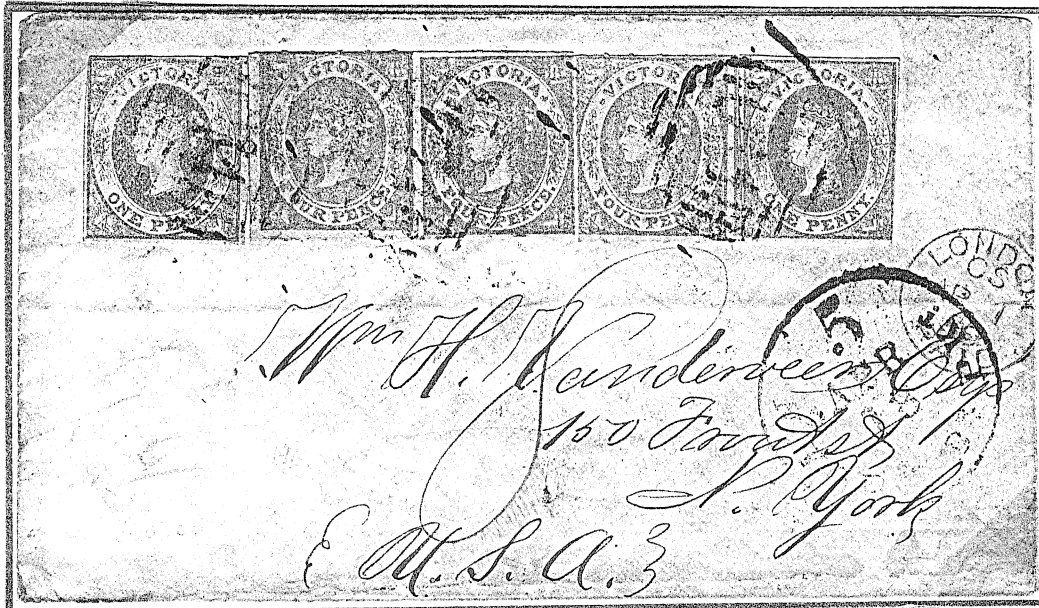 VICTORIA ONE PENNY
VICTORIA FOUR PENCE
VICTORIA FOUR PENCE
VICTORIA FOUR PENCE
VICTORIA ONE PENNY
LONDON
CS
5
Wm H. Vanderveer Esqr
150 Front St
N. York
U. S. A.